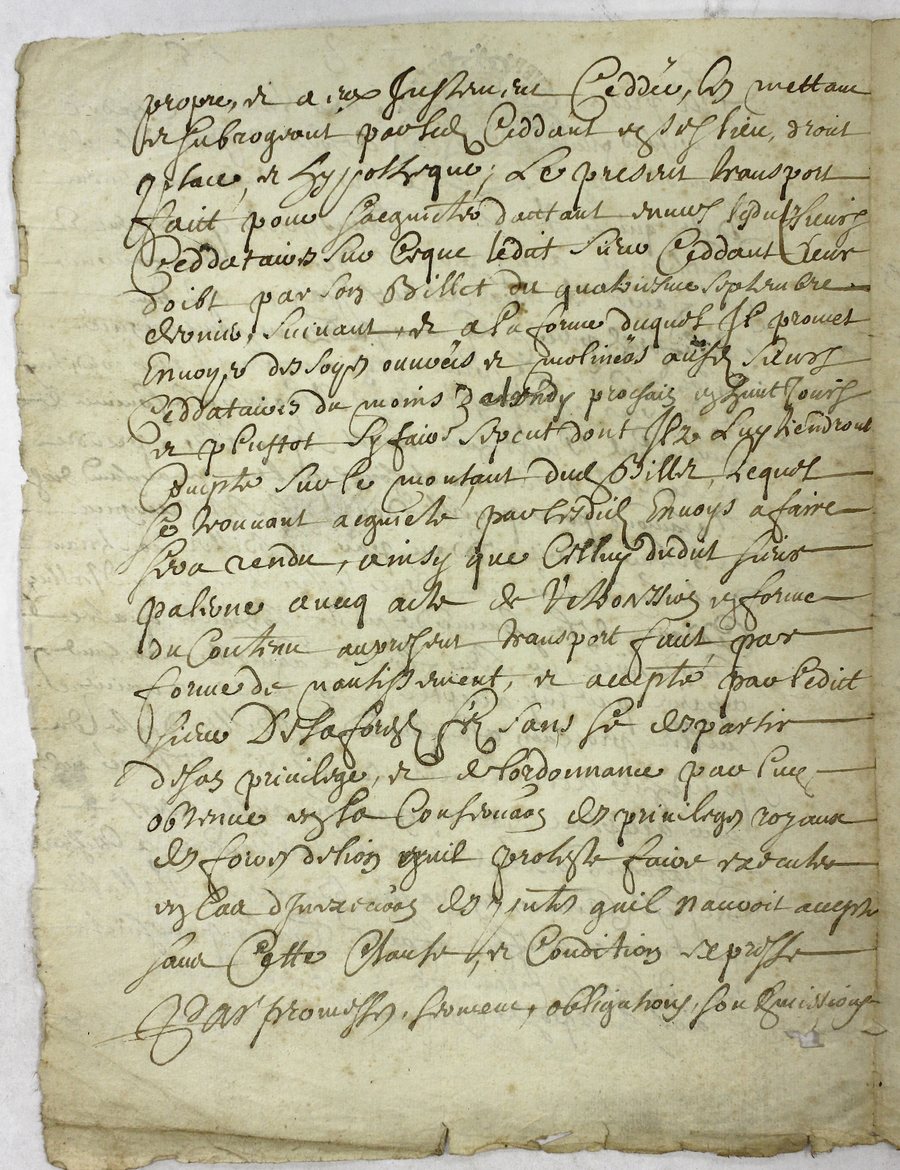 propre, et a eux Justement Ceddée, les mettant
et subrogeant par led Ceddant en ses lieu, droit
place, et hyppotheque, Le present transport
faitt pour s'acquicter dauttant envers lesdits sieurs
Ceddataires sur ce que ledit sieur Ceddant leur
doibt par son Billet du quatriesme septembre
dernier suivant, et a la forme duquel Il promet
Envoyer des soyes ouvrées et molinées ausd sieurs
Ceddataires du moins prochain en huit Jours
et plustost sy faire se peut dont Ilz Luy tiendront
Compte sur le montant dud Billet, Lequel
se trouvant acquicté par lesdits Envoys a faire
sera rendu, ainsy que Celluy dudit sieur
palerne avecq acte de en forme
du Contenu au present transport fait par
forme de nantissement, et accepté par ledict
sieur Delaforest sans se despartir
de son privilege, et de lordonnance par luy
obtenue en la Conservaon des privileges royaux
des foires de lion quil proteste faire executer
en Cas d'Inexecuon des ptes quil nauroit accepté
sans Cette Clause, et Condition expresse
Par promesses, serment, obligations, soubmissions